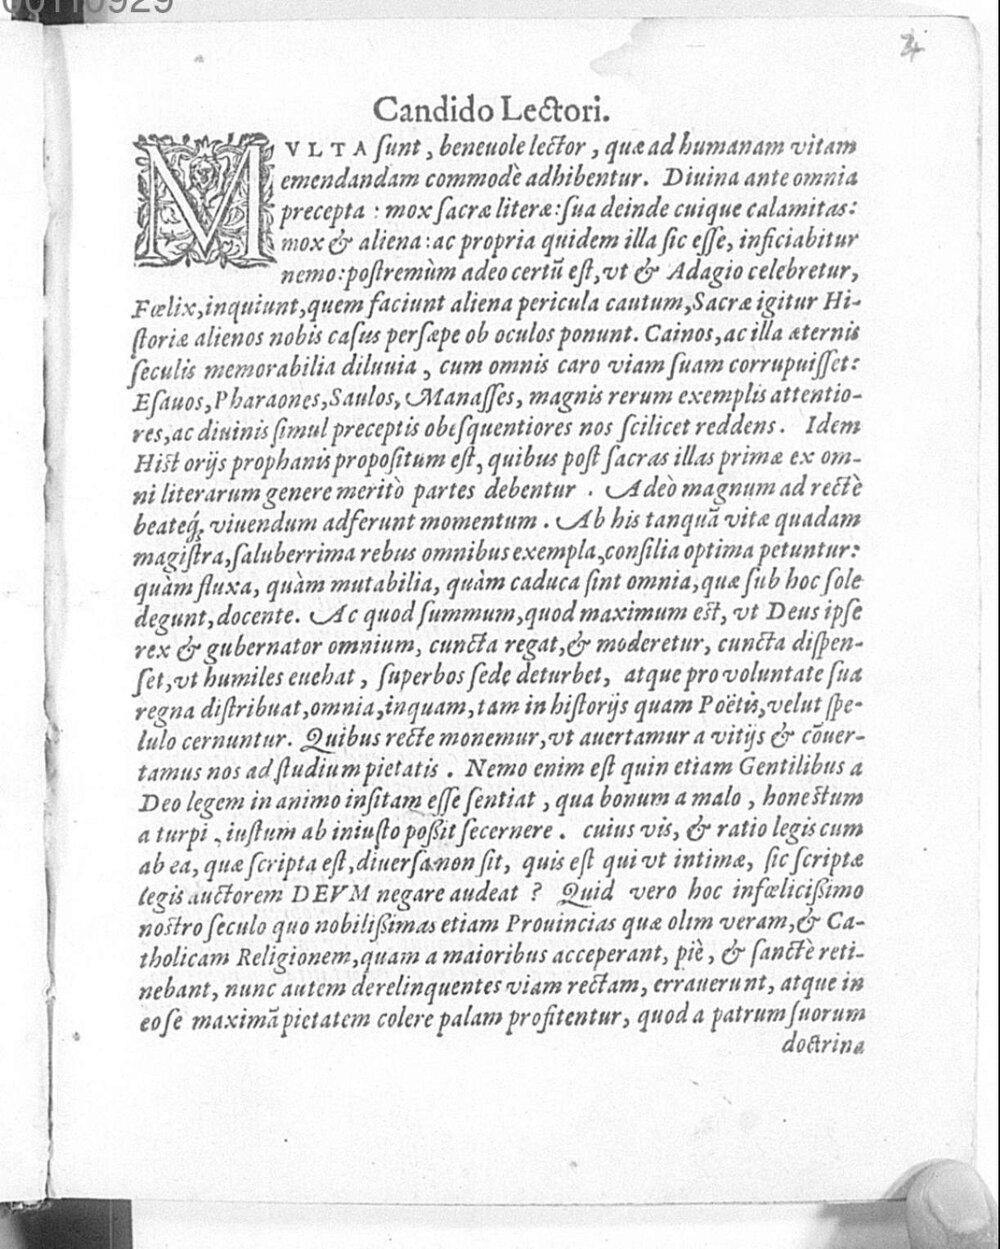 00110929
4
Candido Lectori.
MVLTA sunt, beneuole lector, quæ ad humanam vitam
emendandam commodè adhibentur. Diuina ante omnia
precepta: mox sacræ literæ: sua deinde cuique calamitas:
mox & aliena: ac propria quidem illa sic esse, inficiabitur
nemo: postremùm adeo certũ est, vt & Adagio celebretur,
Fœlix, inquiunt, quem faciunt aliena pericula cautum, Sacræ igitur Hi-
storiæ alienos nobis casus persæpe ob oculos ponunt. Cainos, ac illa æternis
seculis memorabilia diluuia, cum omnis caro viam suam corrupuisset:
Esauos, Pharaones, Saulos, Manasses, magnis rerum exemplis attentio-
res, ac diuinis simul preceptis obesquentiores nos scilicet reddens. Idem
Historijs prophanis propositum est, quibus post sacras illas primæ ex om-
ni literarum genere meritò partes debentur. Adeò magnum ad rectè
beateq́; viuendum adferunt momentum. Ab his tanquã vitæ quadam
magistra, saluberrima rebus omnibus exempla, consilia optima petuntur:
quàm fluxa, quàm mutabilia, quàm caduca sint omnia, quæ sub hoc sole
degunt, docente. Ac quod summum, quod maximum est, vt Deus ipse
rex & gubernator omnium, cuncta regat, & moderetur, cuncta dispen-
set, vt humiles euehat, superbos sede deturbet, atque pro voluntate sua
regna distribuat, omnia, inquam, tam in historijs quam Poëtis, velut spe-
lulo cernuntur. Quibus recte monemur, vt auertamur a vitijs & cõuer-
tamus nos ad studium pietatis. Nemo enim est quin etiam Gentilibus a
Deo legem in animo insitam esse sentiat, qua bonum a malo, honestum
a turpi, iustum ab iniusto poßit secernere. cuius vis, & ratio legis cum
ab ea, quæ scripta est, diuersa non sit, quis est qui vt intimæ, sic scriptæ
legis auctorem DEVM negare audeat? Quid vero hoc infœlicißimo
nostro seculo quo nobilißimas etiam Prouincias quæ olim veram, & Ca-
tholicam Religionem, quam a maioribus acceperant, piè, & sanctè reti-
nebant, nunc autem derelinquentes viam rectam, errauerunt, atque in
eo se maximã pietatem colere palam profitentur, quod a patrum suorum
doctrina